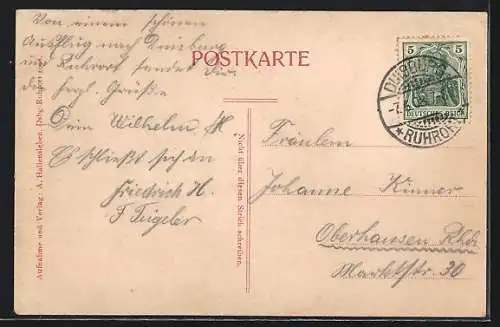 Von einem schönen
Ausflug nach Duisburg
und Ruhrort sendet Dir
die herzl. Grüße
Dein Wilhelm H
Es schließt sich an
Friedrich H.
F Teigeler
POSTKARTE
5 5
DEUTSCHES REICH
DUISBURG
* RUHRORT
Aufnahme und Verlag: A. Hallensleben, Dsbg.-Ruhrort
Nicht über diesen Strich schreiben.
Fräulein
Johanne Kinner
Oberhausen Rhld.
Marktstr. 30